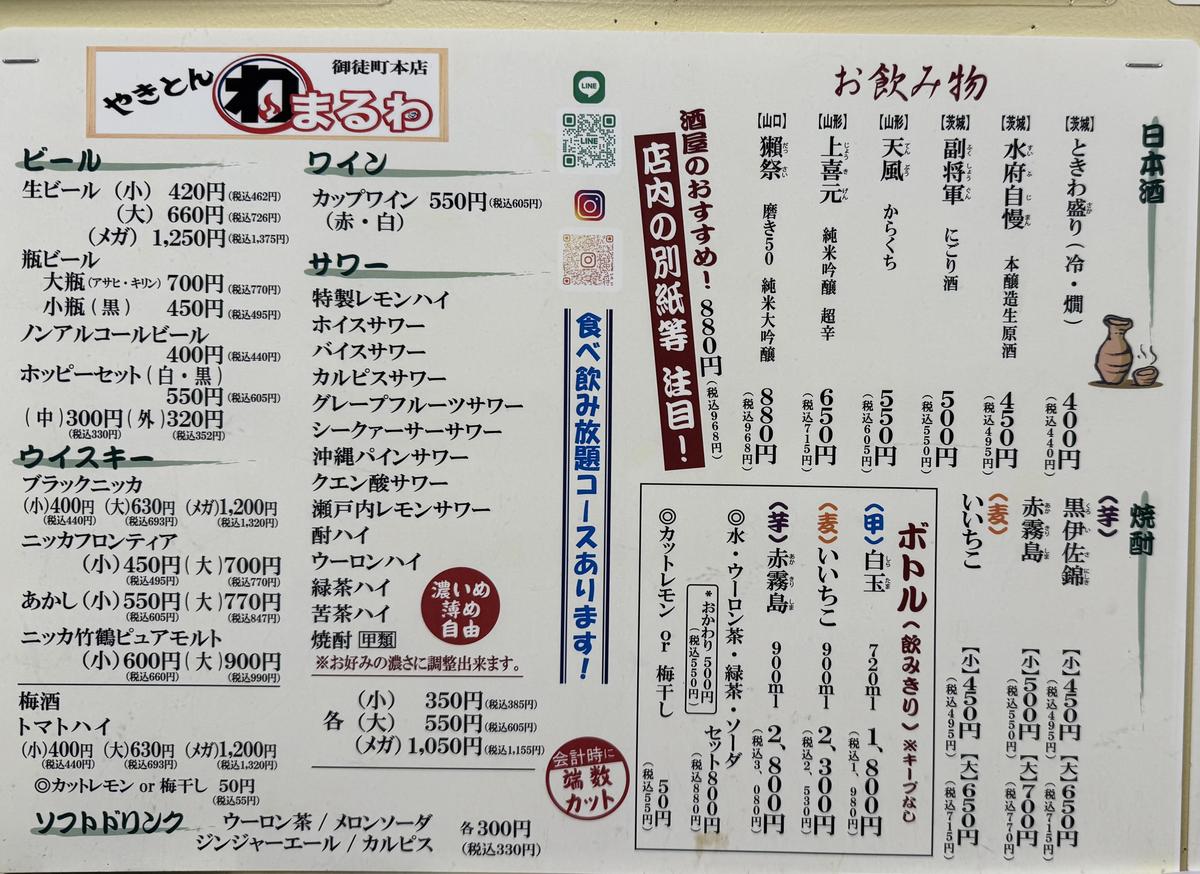 やきとん
わ
まるわ
御徒町本店
LINE
お飲み物
日本酒
【茨城】ときわ盛り(冷・燗) 400円(税込440円)
【茨城】水府自慢 本醸造生原酒 450円(税込495円)
【茨城】副将軍 にごり酒 500円(税込550円)
【山形】天風 からくち 550円(税込605円)
【山形】上喜元 純米吟醸 超辛 650円(税込715円)
【山口】獺祭 磨き50 純米大吟醸 880円(税込968円)
酒屋のおすすめ! 880円(税込968円)
店内の別紙等 注目!
焼酎
〈芋〉
黒伊佐錦 【小】450円(税込495円)【大】650円(税込715円)
赤霧島 【小】500円(税込550円)【大】700円(税込770円)
〈麦〉
いいちこ 【小】450円(税込495円)【大】650円(税込715円)
ボトル〈飲みきり〉※キープなし
〈甲〉白玉 720ml 1,800円(税込1,980円)
〈麦〉いいちこ 900ml 2,300円(税込2,530円)
〈芋〉赤霧島 900ml 2,800円(税込3,080円)
◎水・ウーロン茶・緑茶・ソーダ セット800円(税込880円)
*おかわり500円(税込550円)
◎カットレモン or 梅干し 50円(税込55円)
食べ飲み放題コースあります!
会計時に
端数
カット
ビール
生ビール (小) 420円(税込462円)
(大) 660円(税込726円)
(メガ) 1,250円(税込1,375円)
瓶ビール
大瓶(アサヒ・キリン) 700円(税込770円)
小瓶(黒) 450円(税込495円)
ノンアルコールビール
400円(税込440円)
ホッピーセット(白・黒)
550円(税込605円)
(中)300円(外)320円
(税込330円) (税込352円)
ウイスキー
ブラックニッカ
(小)400円 (大)630円 (メガ)1,200円
(税込440円) (税込693円) (税込1,320円)
ニッカフロンティア
(小)450円(大)700円
(税込495円) (税込770円)
あかし(小)550円(大)770円
(税込605円) (税込847円)
ニッカ竹鶴ピュアモルト
(小)600円(大)900円
(税込660円) (税込990円)
梅酒
トマトハイ
(小)400円 (大)630円 (メガ)1,200円
(税込440円) (税込693円) (税込1,320円)
◎カットレモン or 梅干し 50円
(税込55円)
ワイン
カップワイン 550円(税込605円)
(赤・白)
サワー
特製レモンハイ
ホイスサワー
バイスサワー
カルピスサワー
グレープフルーツサワー
シークァーサーサワー
沖縄パインサワー
クエン酸サワー
瀬戸内レモンサワー
酎ハイ
ウーロンハイ
緑茶ハイ
苦茶ハイ
焼酎 甲類
濃いめ
薄め
自由
※お好みの濃さに調整出来ます。
各
(小) 350円(税込385円)
(大) 550円(税込605円)
(メガ) 1,050円(税込1,155円)
ソフトドリンク
ウーロン茶 / メロンソーダ
ジンジャーエール / カルピス
各300円
(税込330円)